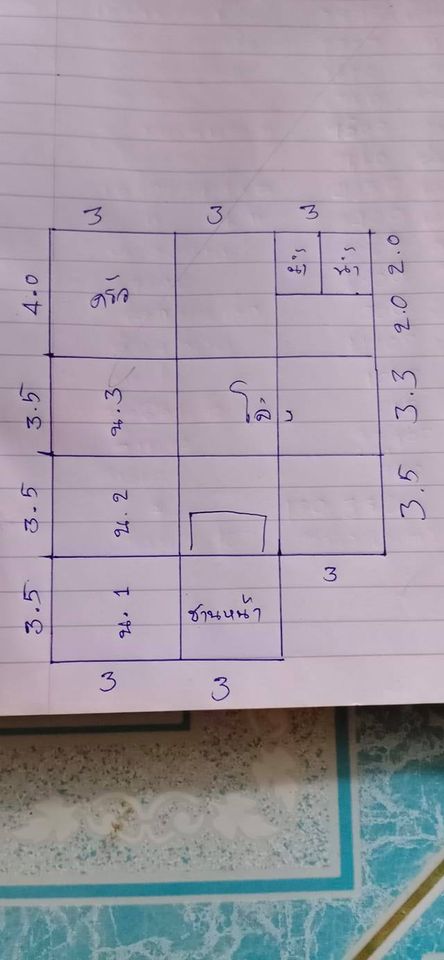 3 3 3
4.0 ครัว น้ำ น้ำ 2.0
2.0
3.5 น.3 โถง 3.3
3.5 น.2 3.5
3
3.5 น.1 ชานหน้า
3 3